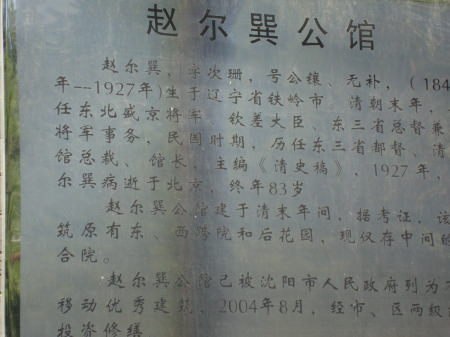 赵尔巽公馆
赵尔巽，字次珊，号公镶、无补，（184
年--1927年)生于辽宁省铁岭市。清朝末年，
任东北盛京将军 钦差大臣、东三省总督兼
将军事务，民国时期，历任东三省都督、清
馆总裁、馆长，主编《清史稿》，1927年，
尔巽病逝于北京，终年83岁
赵尔巽公馆建于清末年间，据考证，该
筑原有东、西跨院和后花园，现仅存中间的
合院。
赵尔巽公馆已被沈阳市人民政府列为不
移动优秀建筑，2004年8月，经市、区两级
投资修缮